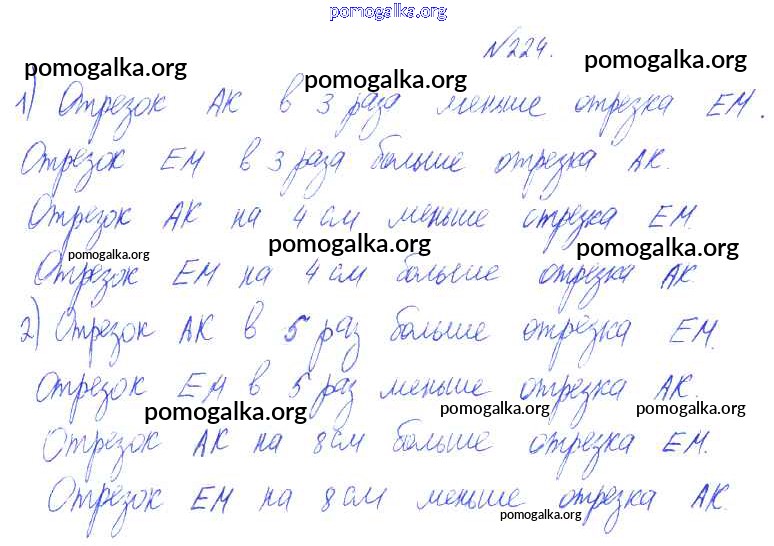 pomogalka.org
№224.
pomogalka.org pomogalka.org pomogalka.org
1) Отрезок АК в 3 раза меньше отрезка ЕМ.
Отрезок ЕМ в 3 раза больше отрезка АК.
Отрезок АК на 4 см меньше отрезка ЕМ.
pomogalka.org pomogalka.org pomogalka.org
Отрезок ЕМ на 4 см больше отрезка АК.
2) Отрезок АК в 5 раз больше отрезка ЕМ.
Отрезок ЕМ в 5 раз меньше отрезка АК.
pomogalka.org pomogalka.org pomogalka.org
Отрезок АК на 8 см больше отрезка ЕМ.
Отрезок ЕМ на 8 см меньше отрезка АК.
pomogalka.org